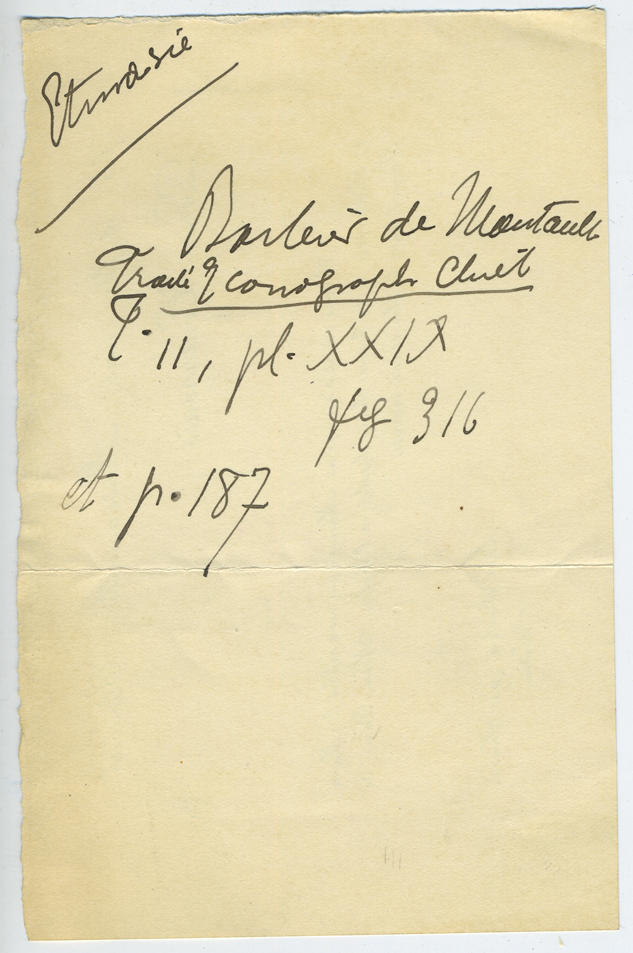 Etimasie
Barbier de Montault
Traité Iconograph Chret
T. II, pl. XXIX
fig 316
et p. 187